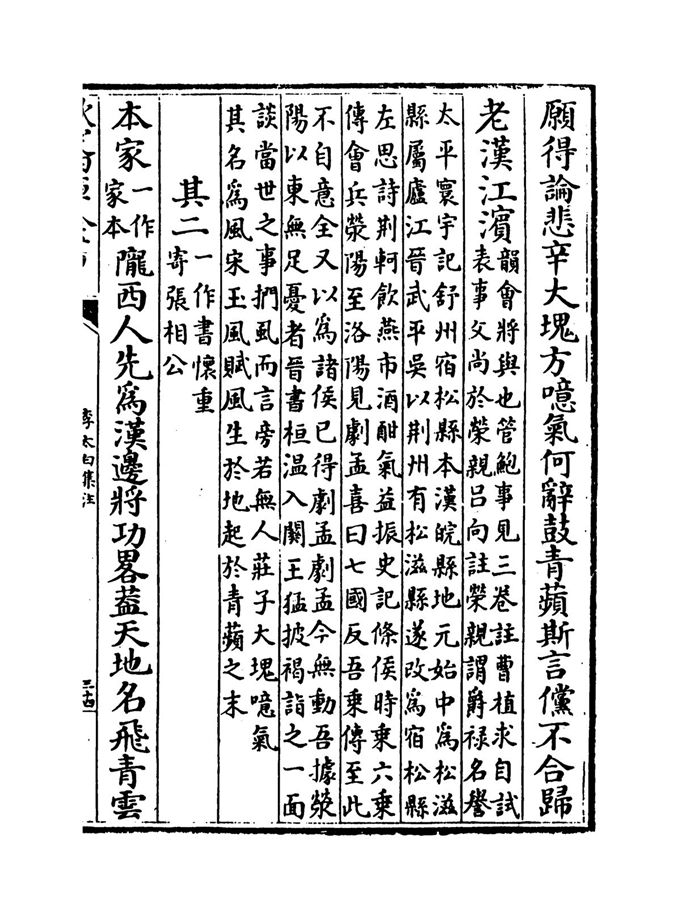 願得論悲辛大塊方噫氣何辭鼓青蘋斯言儻不合歸
老漢江濱
韻會將與也管鮑事見三卷註曹植求自試
表事父尚於榮親呂向註榮親謂爵禄名譽
太平寰宇記舒州宿松縣本漢皖縣地元始中為松滋
縣屬廬江晉武平吳以荆州有松滋縣遂改為宿松縣
左思詩荆軻飲燕市酒酣氣益振史記條侯時乗六乗
傳會兵滎陽至洛陽見劇孟喜曰七國反吾乗傳至此
不自意全又以為諸侯已得劇孟劇孟今無動吾據滎
陽以東無足憂者晉書桓温入關王猛披褐詣之一面
談當世之事捫虱而言旁若無人莊子大塊噫氣
其名為風宋玉風賦風生於地起於青蘋之末
其二
一作書懷重
寄張相公
本家
一作
家本
隴西人先為漢邊將功畧葢天地名飛青雲
李太白集注
三十四